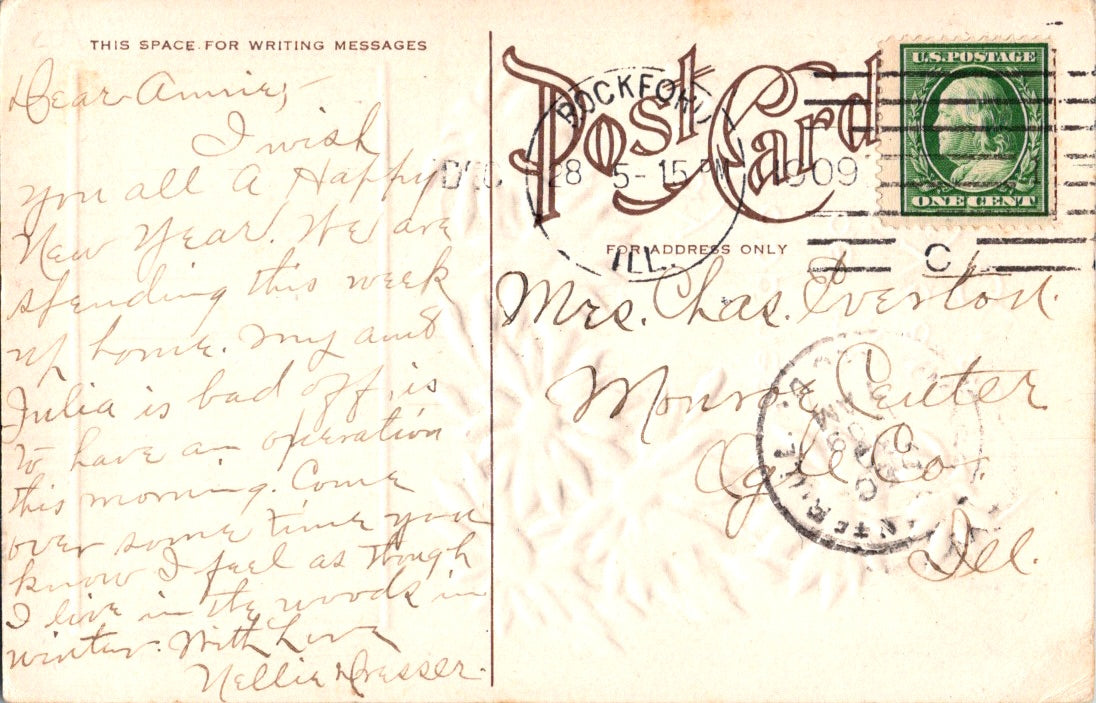 THIS SPACE FOR WRITING MESSAGES
Dear Annie,-
I wish
you all a Happy
New Year. We are
spending this week
up home. My aunt
Julia is bad off, is
to have an operation
this morning. Come
over some time you
know I feel as though
I live in the woods in
winter. With Love
Nellie Dresser.
Post Card
ROCKFORD
DEC 28 5-15 PM 1909
ILL.
U.S. POSTAGE
ONE CENT
FOR ADDRESS ONLY
Mrs. Chas. Iverton.
Monroe Center
Ogle Co
Ill.
AM